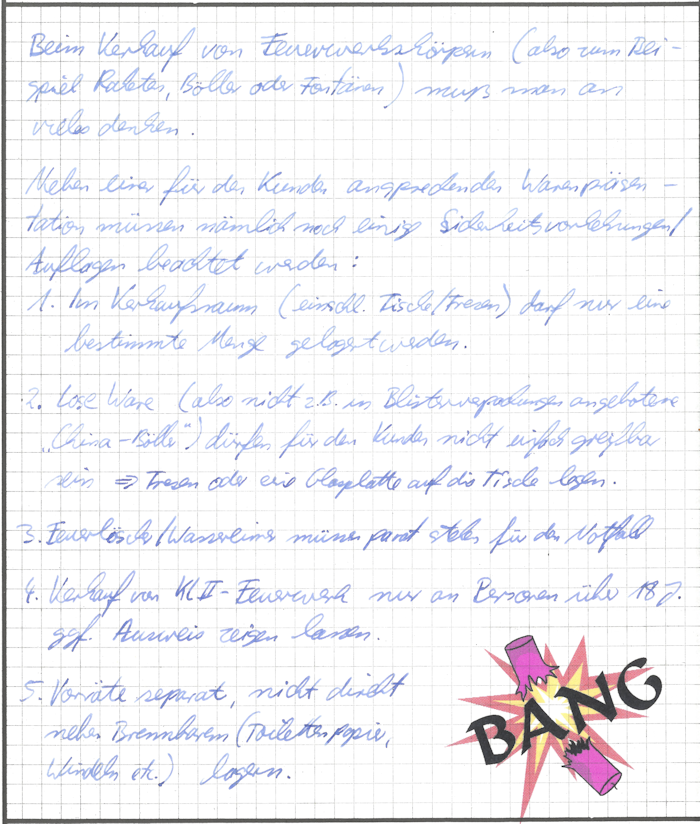 Beim Verkauf von Feuerwerkskörpern (also zum Bei-
spiel Raketen, Böller oder Fontänen) muß man an
vieles denken.
Neben einer für den Kunden ansprechenden Warenpräsen-
tation müssen nämlich noch einige Sicherheitsvorkehrungen/
Auflagen beachtet werden:
1. Im Verkaufsraum (einschl. Tische/Tresen) darf nur eine
bestimmte Menge gelagert werden.
2. Lose Ware (also nicht z.B. in Blisterverpackungen angebotene
„China-Böller") dürfen für den Kunden nicht einfach greifbar
sein ⇒ Tresen oder eine Glasplatte auf die Tische legen.
3. Feuerlöscher/Wassereimer müssen parat stehen für den Notfall
4. Verkauf von Kl II-Feuerwerk nur an Personen über 18 J.
ggf. Ausweis zeigen lassen.
5. Vorräte separat, nicht direkt
neben Brennbarem (Toilettenpapier,
Windeln etc.) lagern.
BANG